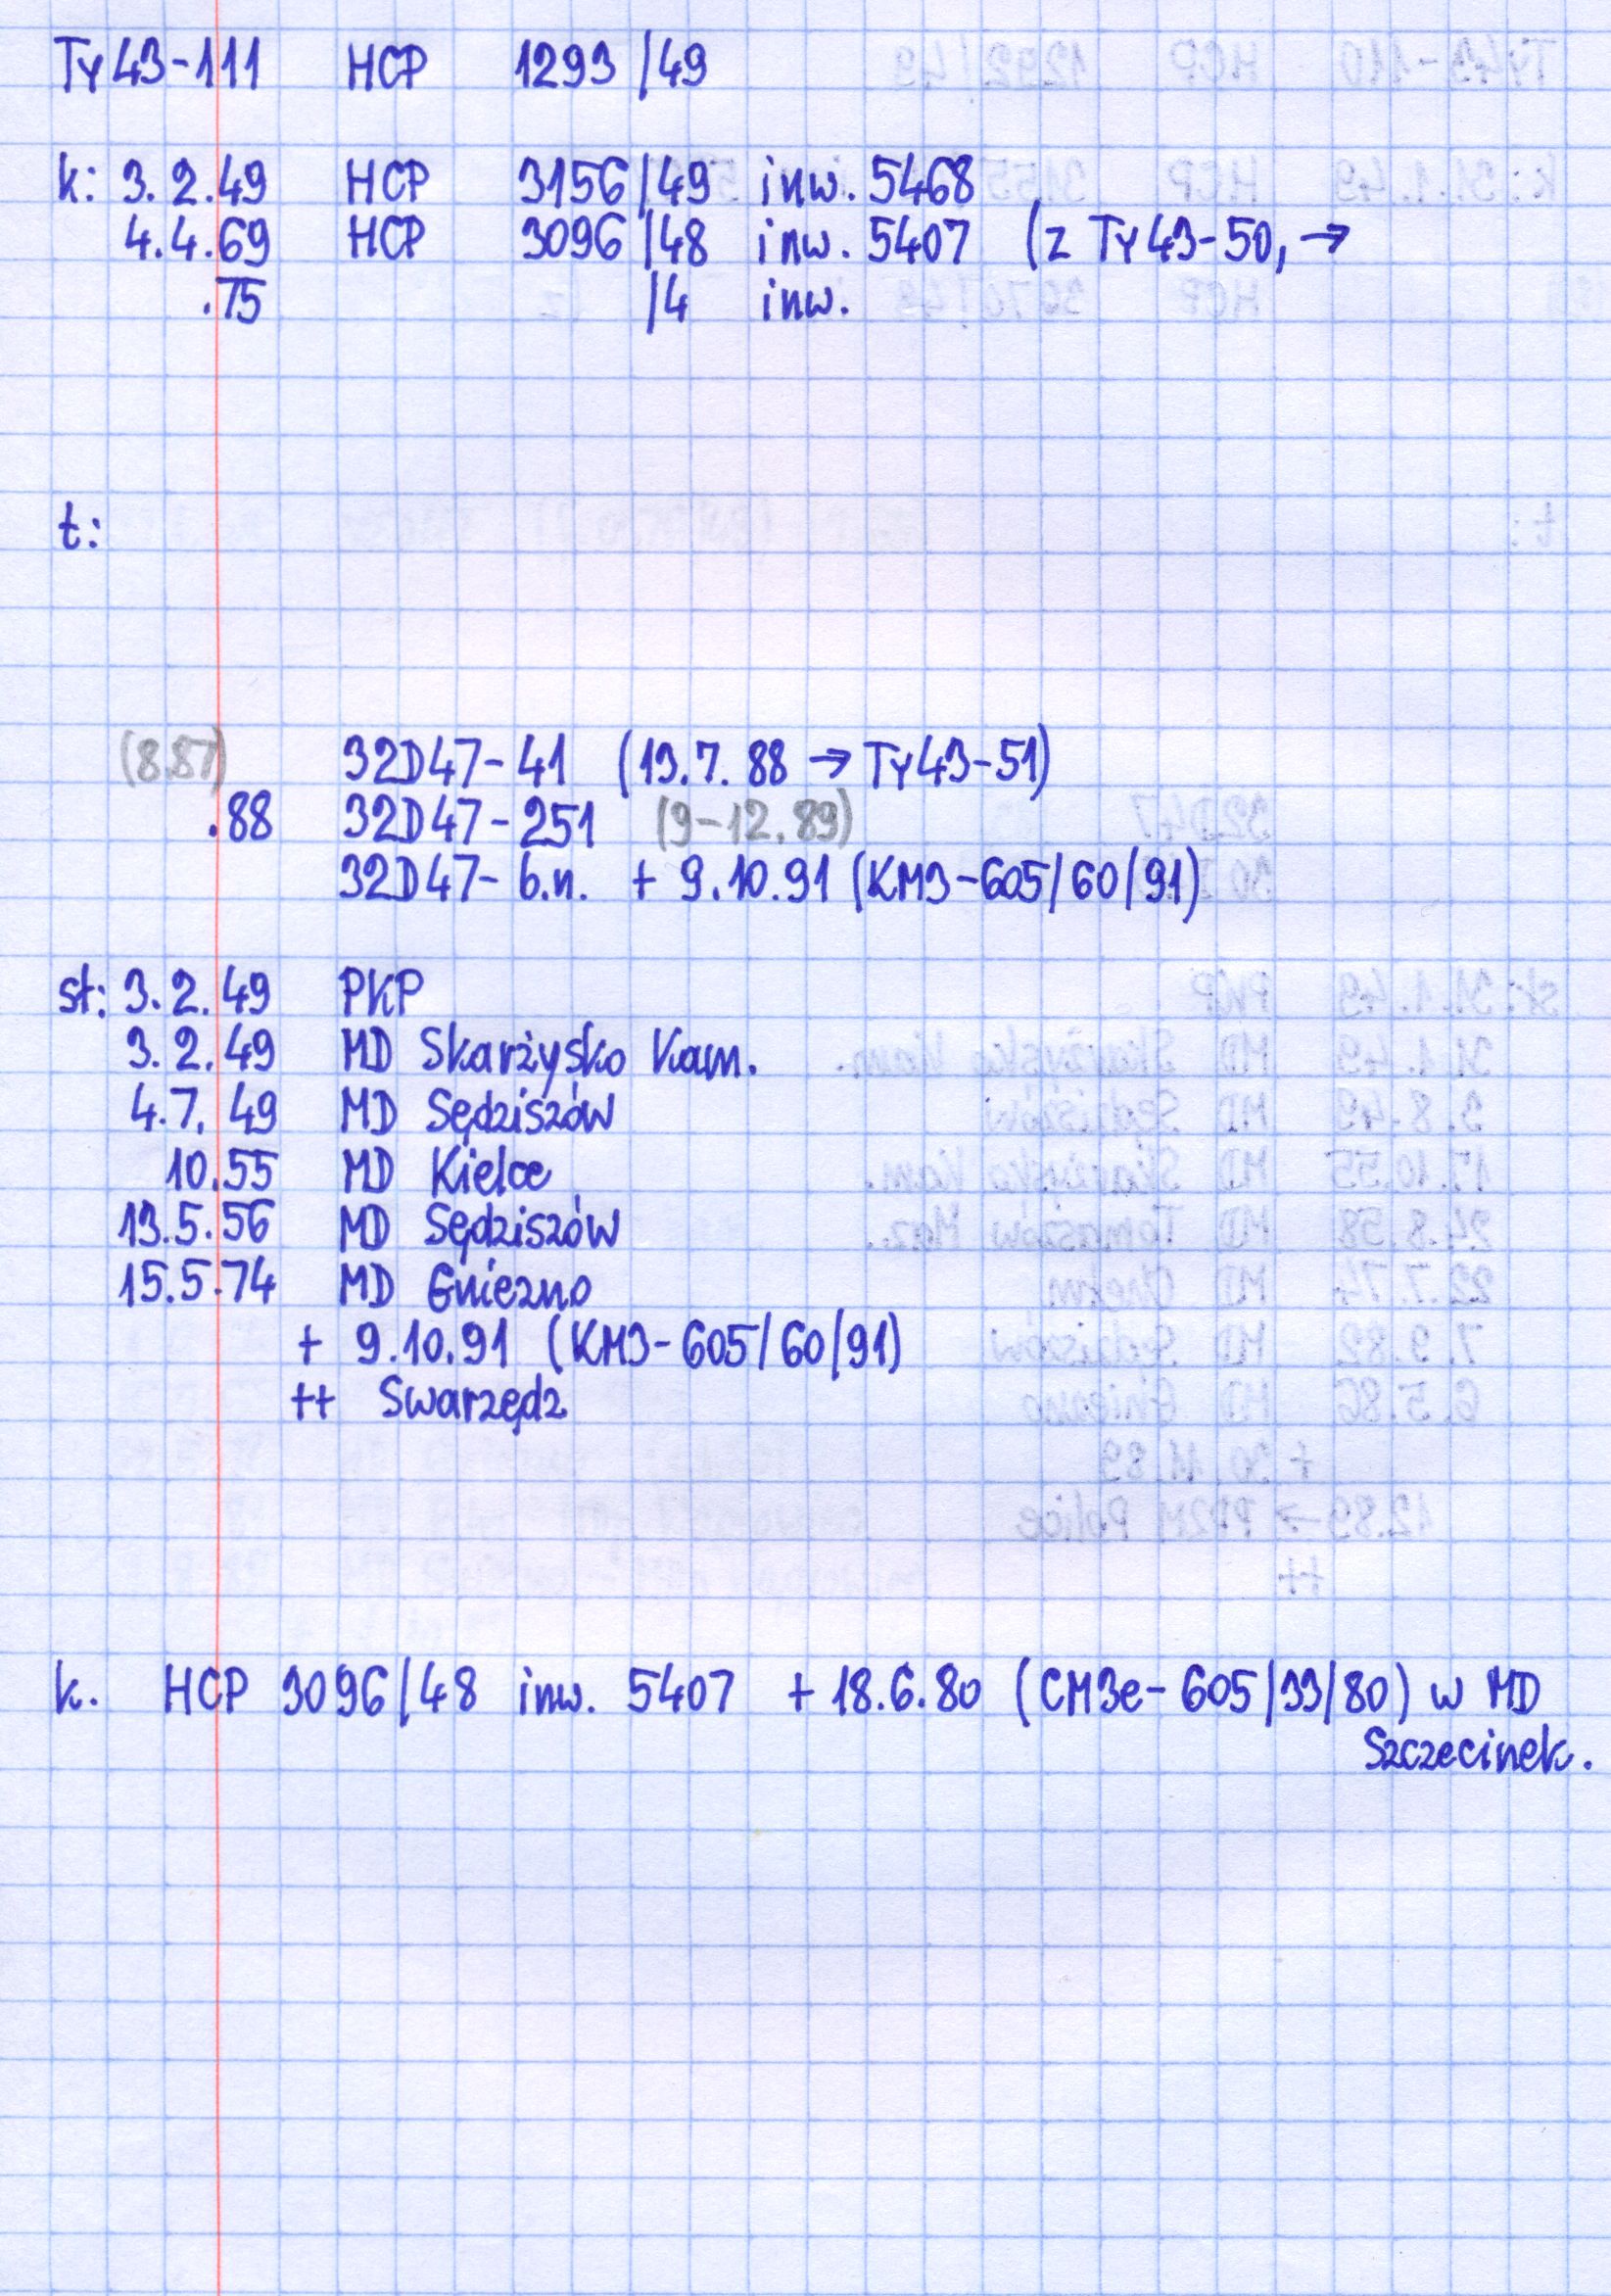 Ty43-111 HCP 1293/49
k: 3.2.49 HCP 3156/49 inw. 5468
4.4.69 HCP 3096/48 inw. 5407 (z Ty43-50, →
.75 /4 inw.
t:
(8.87) 32D47-41 (13.7.88 → Ty43-51)
.88 32D47-251 (9-12.89)
32D47- b.n. + 9.10.91 (KM3-605/60/91)
st: 3.2.49 PKP
3.2.49 MD Skarżysko Kam.
4.7.49 MD Sędziszów
10.55 MD Kielce
13.5.56 MD Sędziszów
15.5.74 MD Gniezno
+ 9.10.91 (KM3-605/60/91)
++ Swarzędz
k. HCP 3096/48 inw. 5407 + 18.6.80 (CM3e-605/33/80) w MD
Szczecinek.